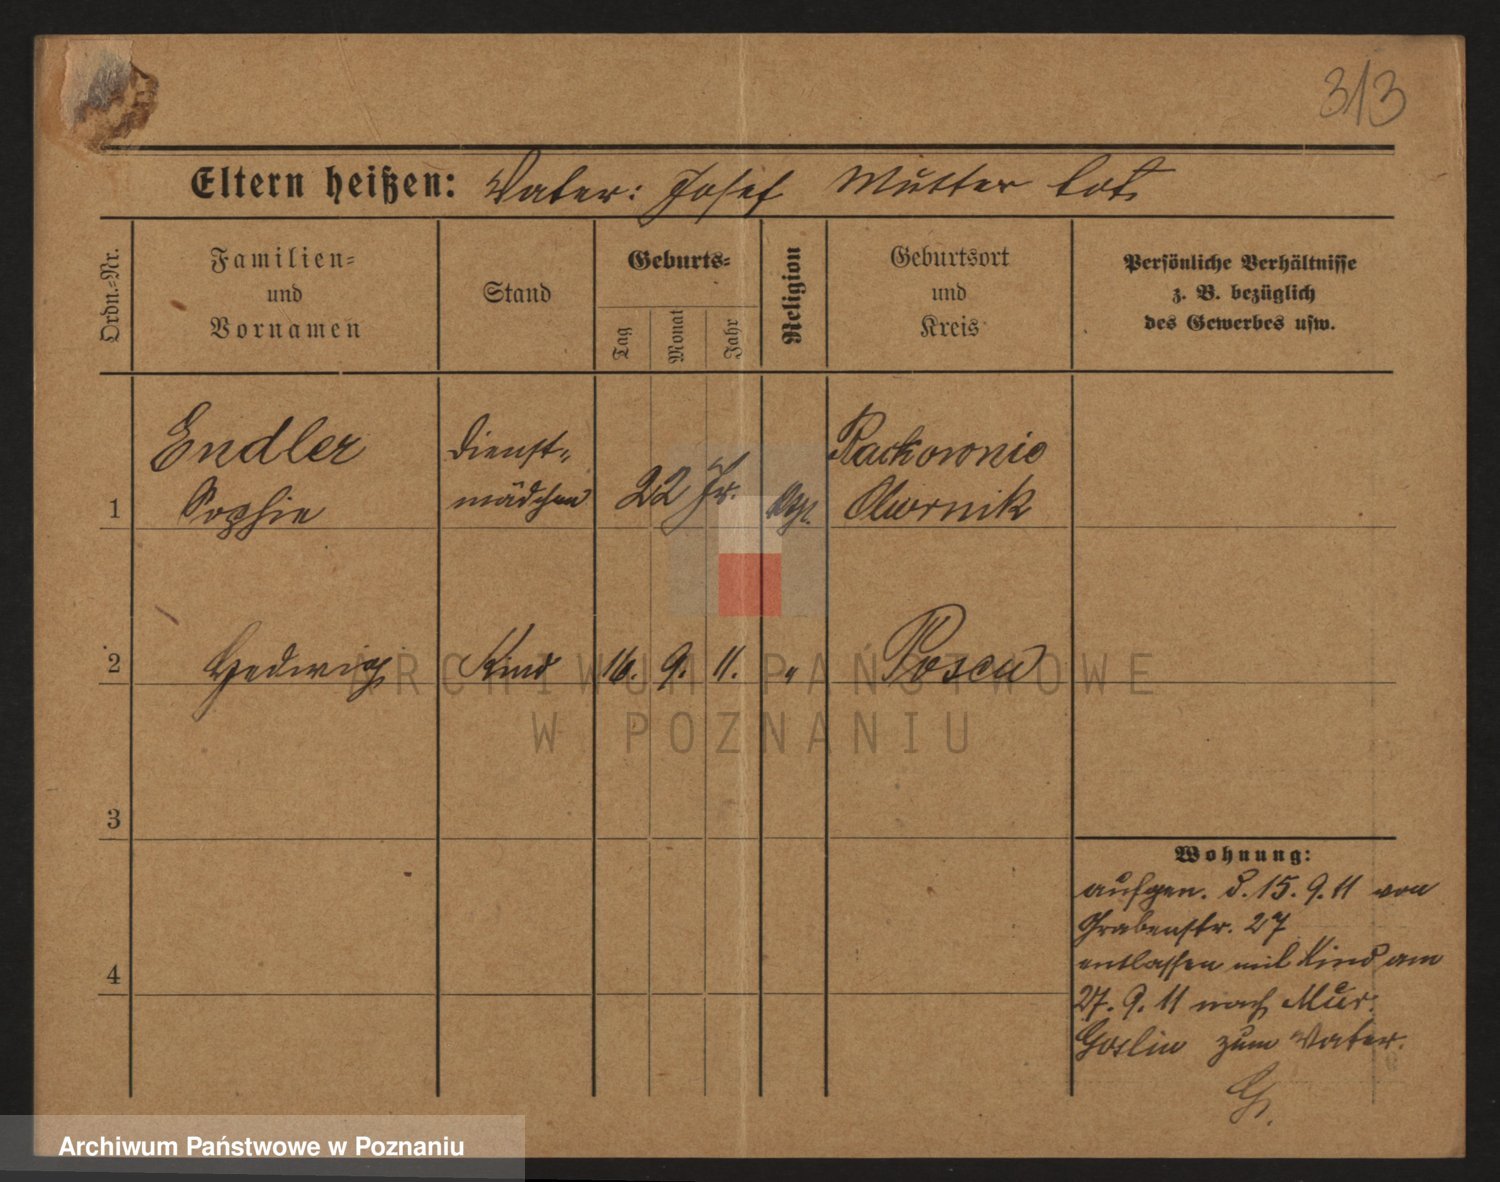 313
Eltern heißen: Vater: Josef Mutter tot.
Ordn.-Nr.
Familien-
und
Vornamen
Stand
Geburts-
Tag
Monat
Jahr
Religion
Geburtsort
und
Kreis
Persönliche Verhältnisse
z. B. bezüglich
des Gewerbes usw.
Endler Dienst- Rackownie
1 Sophie mädchen 22 Jr. Obornik
2 Hedwig Kind 16. 9. 11. " Posen
3
4
Wohnung:
aufgen. d. 15. 9. 11 von
Grabenstr. 27
entlassen mit Kind am
27. 9. 11 nach Mur.
Goslin zum Vater.
G.
ARCHIWUM PAŃSTWOWE
W POZNANIU
Archiwum Państwowe w Poznaniu